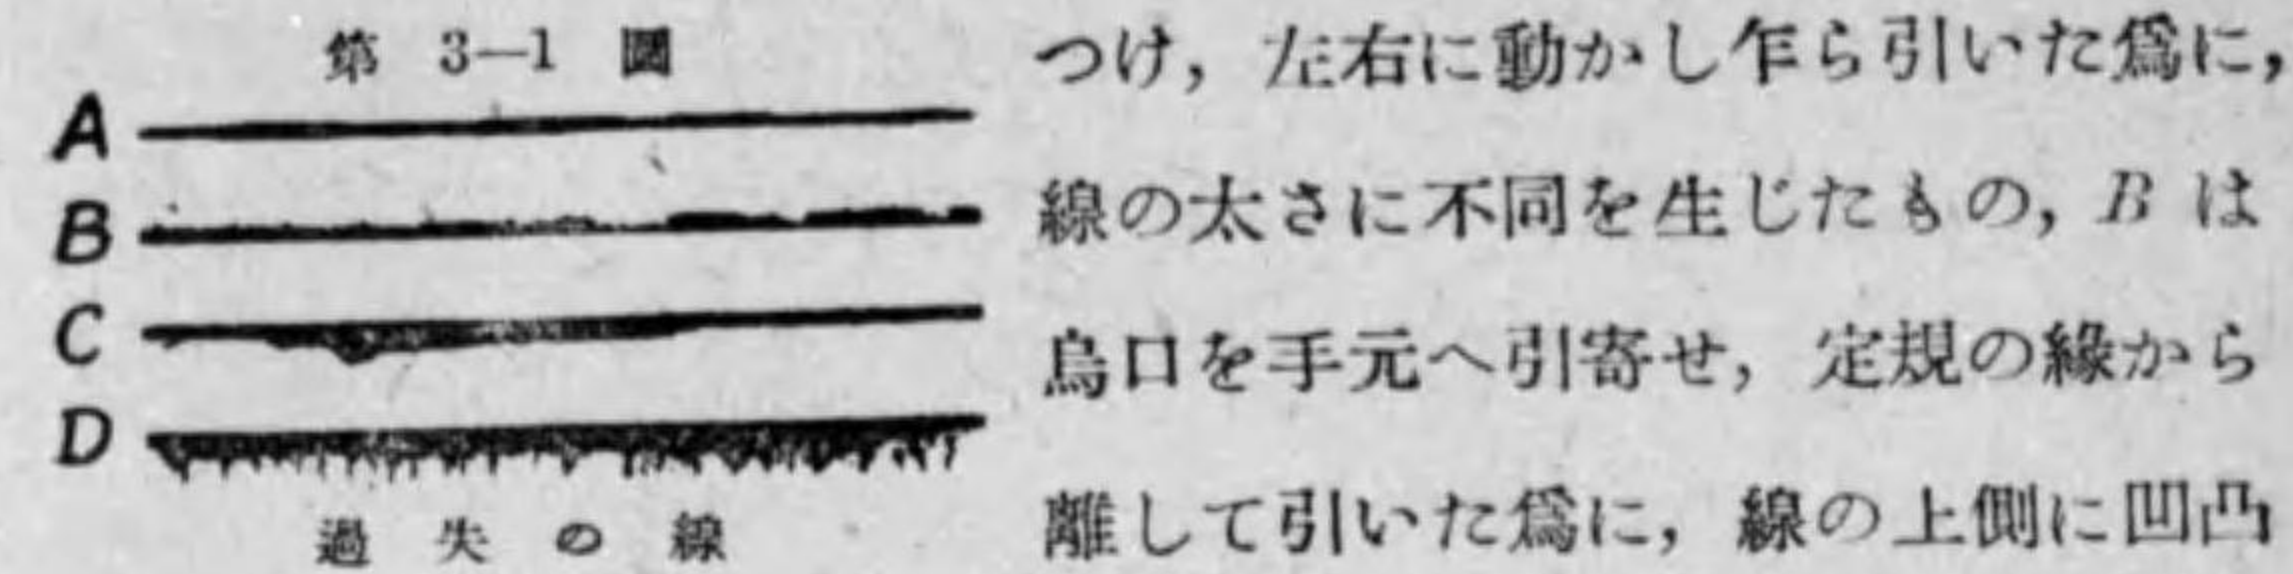 第 3—1 圖
A
B
C
D
過失の線
つけ，左右に動かし乍ら引いた爲に，
線の太さに不同を生じたもの，B は
烏口を手元へ引寄せ，定規の緣から
離して引いた爲に，線の上側に凹凸